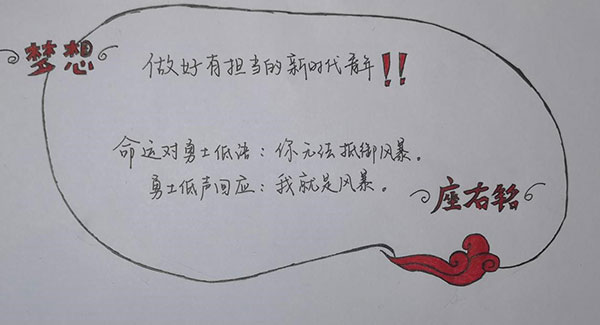 梦想
做好有担当的新时代青年!!
命运对勇士低语：你无法抵御风暴。
勇士低声回应：我就是风暴。
座右铭